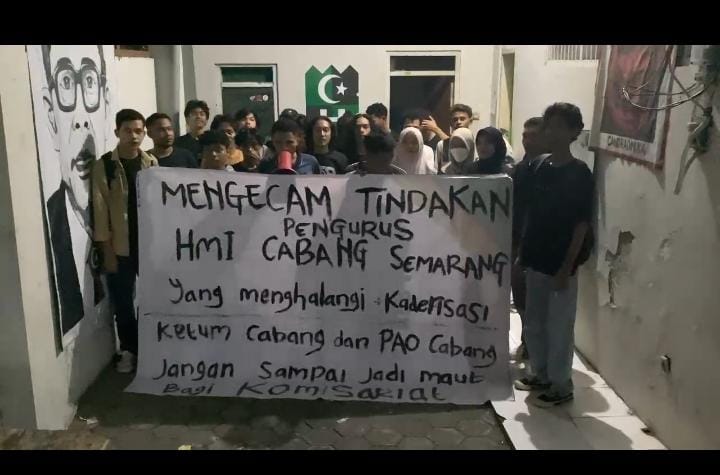 MENGECAM TINDAKAN
PENGURUS
HMI CABANG SEMARANG
Yang menghalangi Kaderisasi
Ketum Cabang dan PAO Cabang
Jangan Sampai Jadi maut
Bagi Komisariat